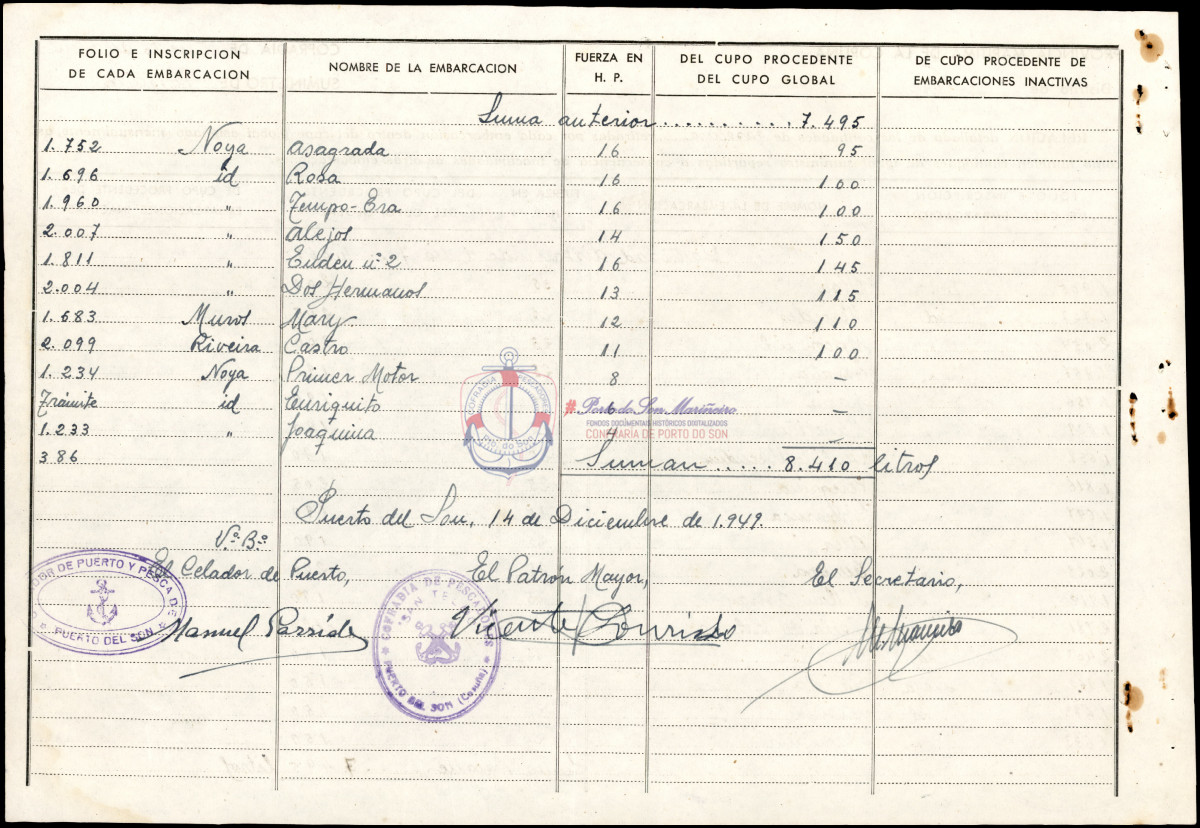 FOLIO E INSCRIPCION DE CADA EMBARCACION
NOMBRE DE LA EMBARCACION
FUERZA EN H. P.
DEL CUPO PROCEDENTE DEL CUPO GLOBAL
DE CUPO PROCEDENTE DE EMBARCACIONES INACTIVAS
Suma anterior .......... 7.495
1.752 Noya Asagrada 16 95
1.696 id Rosa 16 100
1.960 " Tempo-Era 16 100
2.007 " Alejos 14 150
1.811 " Enden nº 2 16 145
2.004 " Dos Hermanos 13 115
1.683 Muros Mary 12 110
2.099 Riveira Castro 11 100
1.234 Noya Primer Motor 8 –
Trámite id Enriquito 6 –
1.233 " Joaquina 4 –
386 Suman ..... 8.410 litros
COFRADIA PESCADORES
Pto. do Son
# Porto do Son Mariñeiro
FONDOS DOCUMENTAIS HISTÓRICOS DIXITALIZADOS
CONFRARÍA DE PORTO DO SON
Puerto del Son, 14 de Diciembre de 1.949.
Vº. Bº.
El Celador de Puerto, El Patrón Mayor, El Secretario,
DE PUERTO Y PESCA DE
PUERTO DEL SON
Manuel Parride
COFRADIA DE PESCADORES
SAN TELMO
PUERTO DEL SON (Coruña)
Vicente